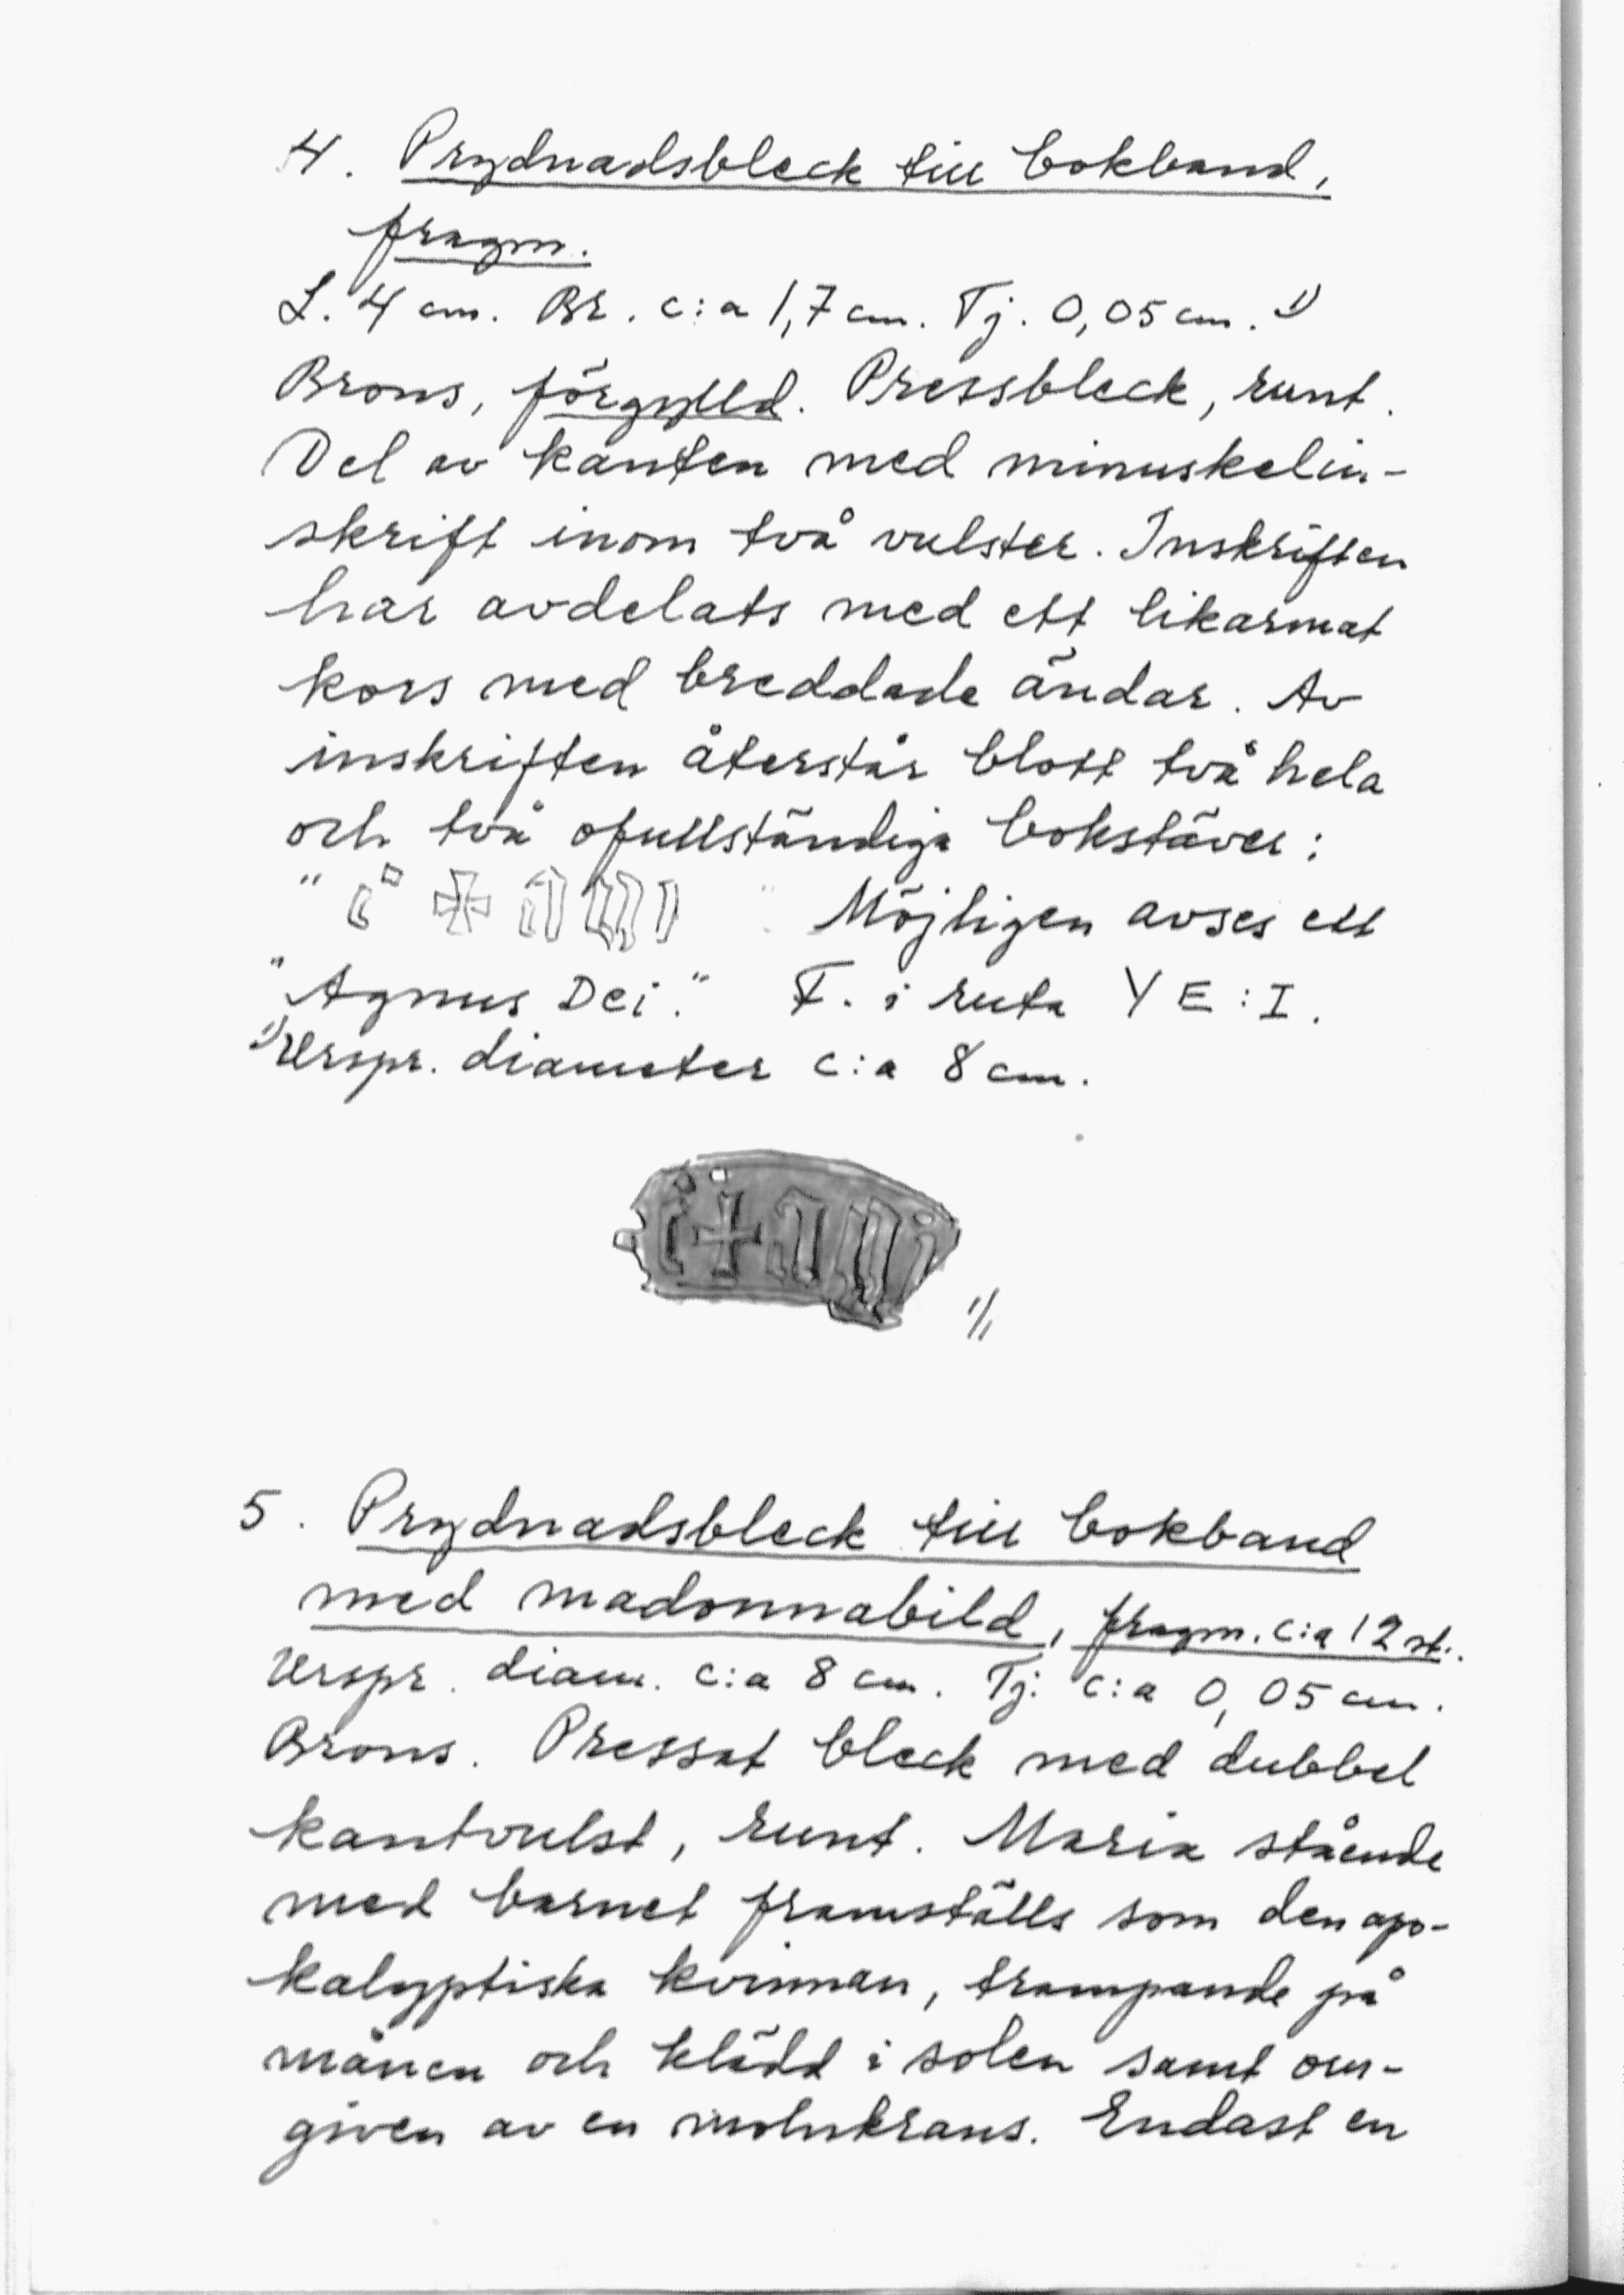 4. Prydnadsbleck till bokband,
fragm.
L. 4 cm. Br. c:a 1,7 cm. Tj. 0,05 cm. 1)
Brons, förgylld. Pressbleck, runt.
Del av kanten med minuskelin-
skrift inom två vulster. Inskriften
har avdelats med ett likarmat
kors med breddade ändar. Av
inskriften återstår blott två hela
och två ofullständiga bokstäver:
" i ✠ " Möjligen avses ett
"Agnus Dei." F. i ruta YE:I.
1) Urspr. diameter c:a 8 cm.
1/1
5. Prydnadsbleck till bokband
med madonnabild, fragm. c:a 12 st.
Urspr. diam. c:a 8 cm. Tj. c:a 0,05 cm.
Brons. Pressat bleck med dubbel
kantvulst, runt. Maria stående
med barnet framställs som den apo-
kalyptiska kvinnan, trampande på
månen och klädd i solen samt om-
given av en molnkrans. Endast en